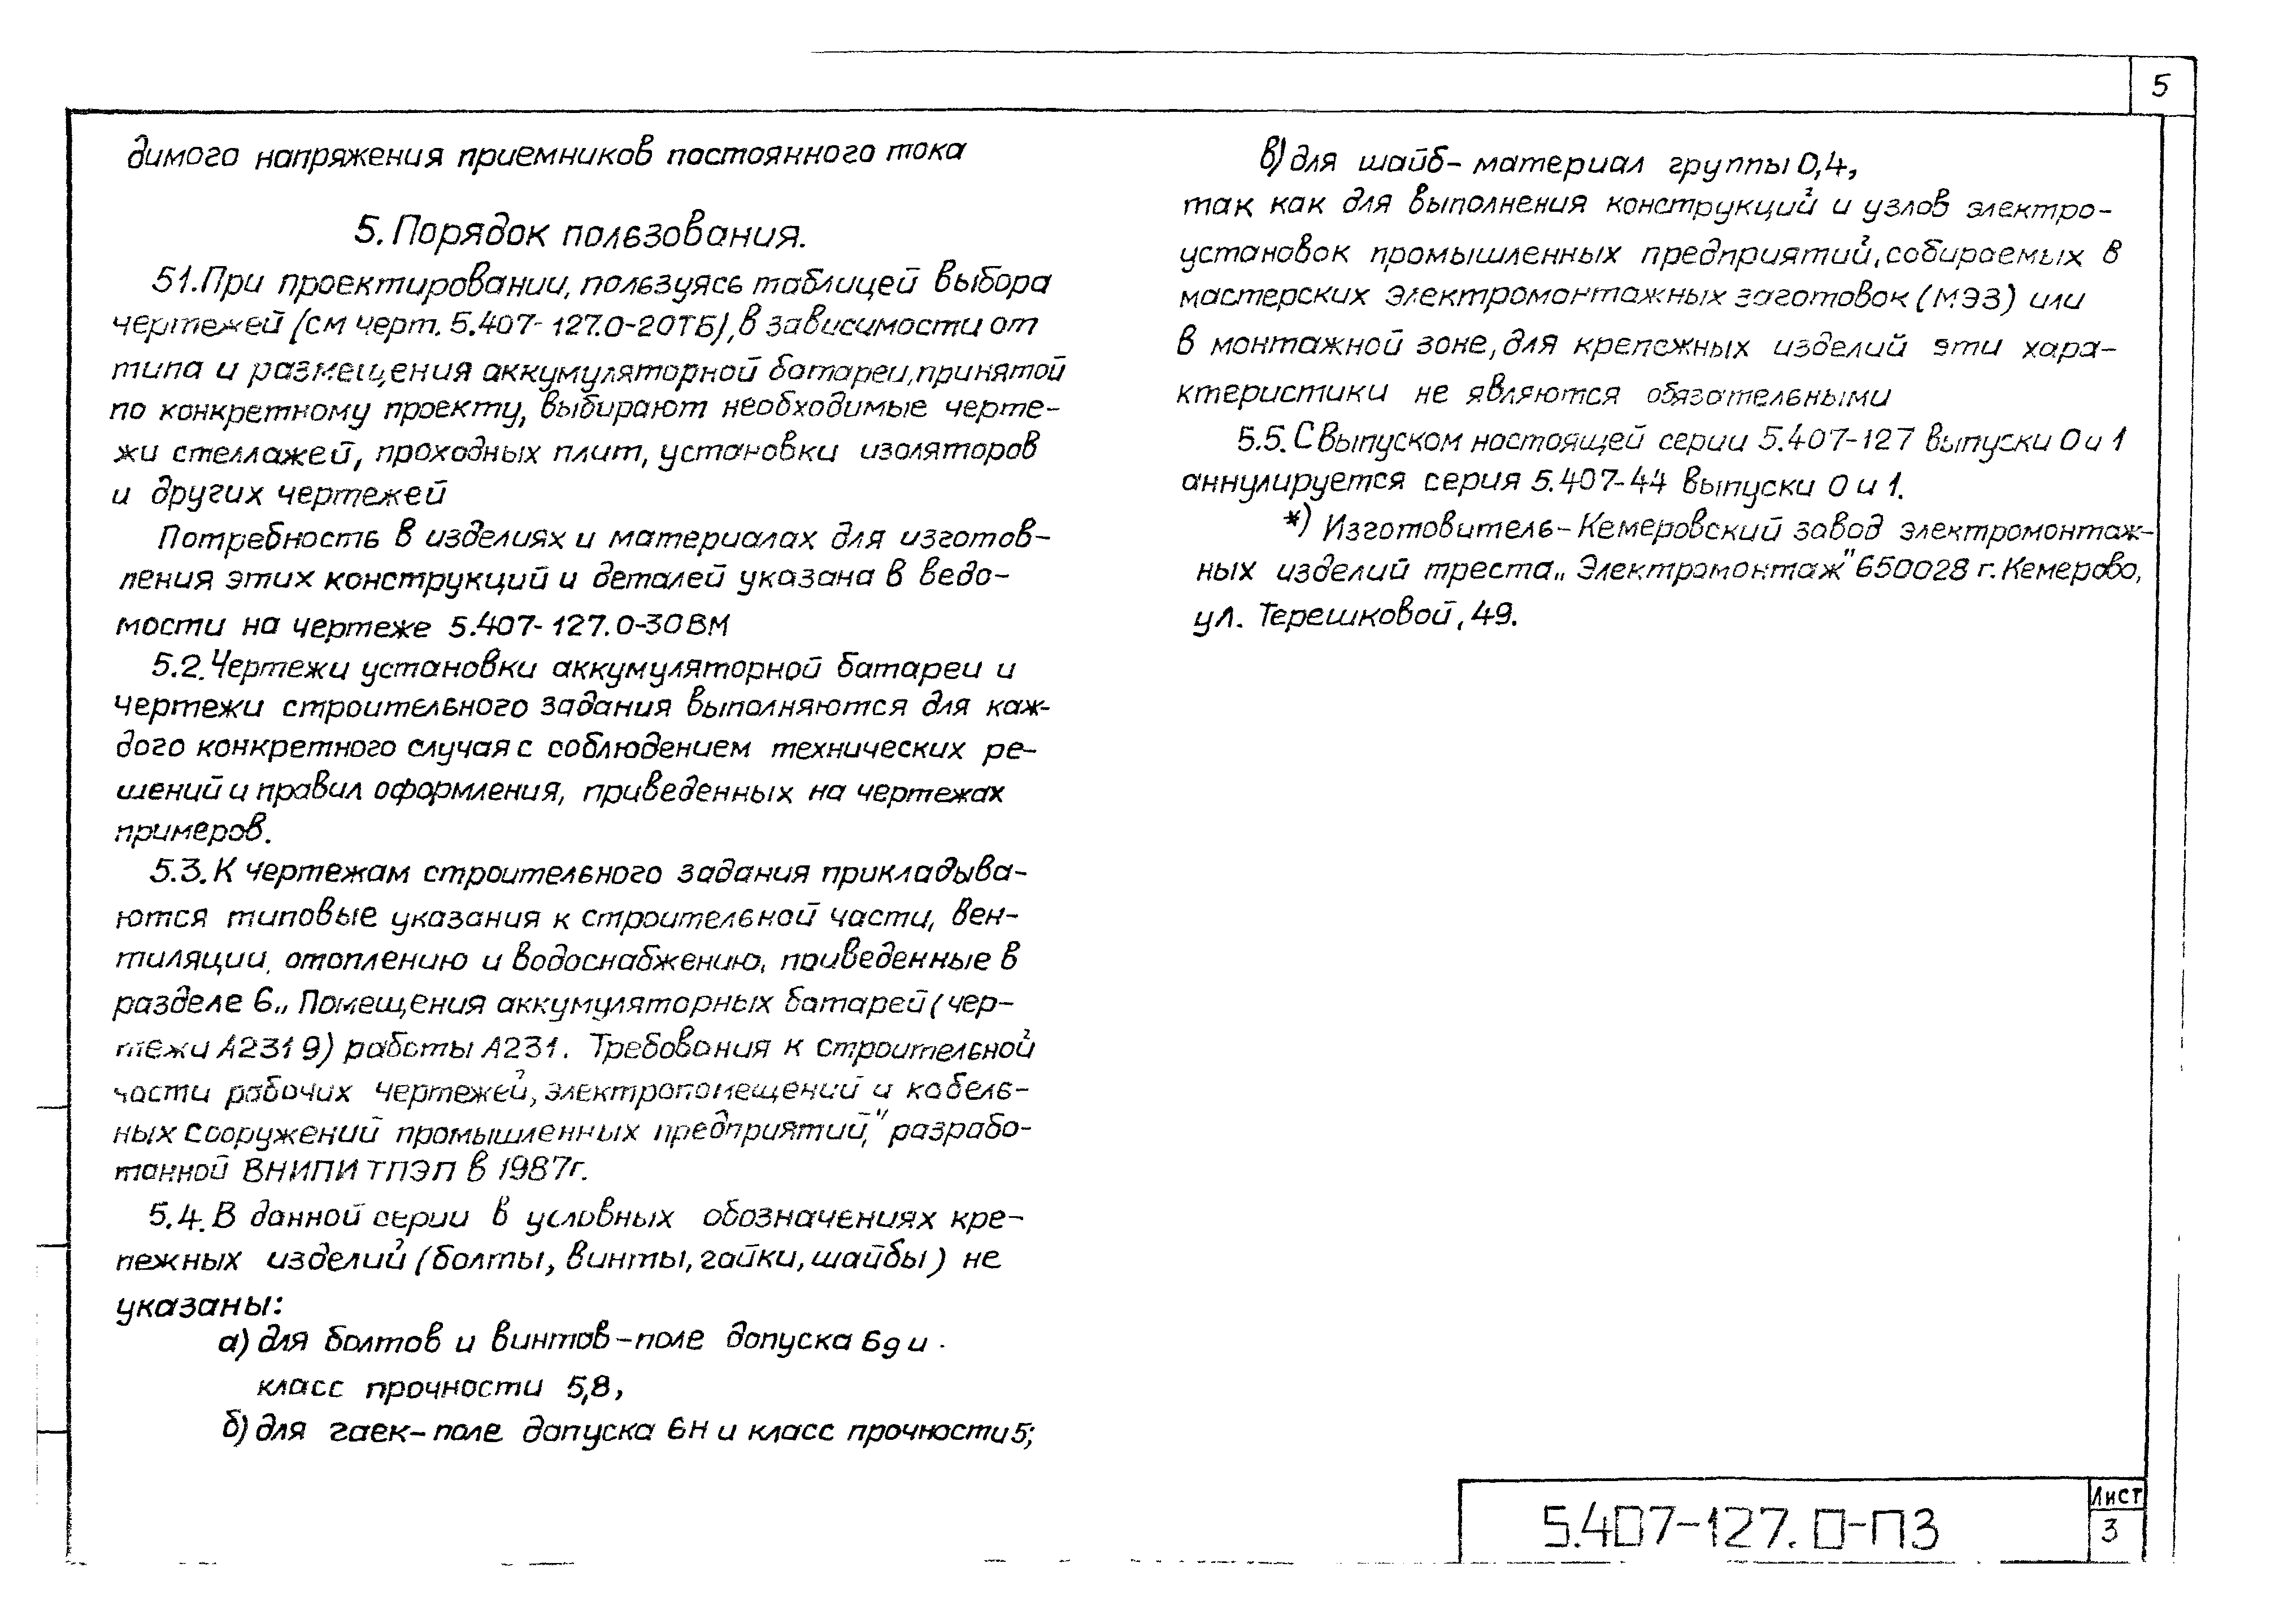 5
димого напряжения приемников постоянного тока
5. Порядок пользования.
51. При проектировании, пользуясь таблицей выбора
чертежей (см черт. 5.407-127.0-20ТБ), в зависимости от
типа и размещения аккумуляторной батареи, принятой
по конкретному проекту, выбирают необходимые черте-
жи стеллажей, проходных плит, установки изоляторов
и других чертежей
Потребность в изделиях и материалах для изготов-
ления этих конструкций и деталей указана в ведо-
мости на чертеже 5.407-127.0-30ВМ
5.2. Чертежи установки аккумуляторной батареи и
чертежи строительного задания выполняются для каж-
дого конкретного случая с соблюдением технических ре-
шений и правил оформления, приведенных на чертежах
примеров.
5.3. К чертежам строительного задания прикладыва-
ются типовые указания к строительной части, вен-
тиляции, отоплению и водоснабжению, приведенные в
разделе 6 „Помещения аккумуляторных батарей (чер-
тежи А231 9) работы А231. Требования к строительной
части рабочих чертежей, электропомещений и кабель-
ных сооружений промышленных предприятий," разрабо-
танной ВНИПИ ТПЭП в 1987г.
5.4. В данной серии в условных обозначениях кре-
пежных изделий (болты, винты, гайки, шайбы) не
указаны:
а) для болтов и винтов - поле допуска 6g и
класс прочности 5,8,
б) для гаек - поле допуска 6Н и класс прочности 5;
в) для шайб - материал группы 0,4,
так как для выполнения конструкций и узлов электро-
установок промышленных предприятий, собираемых в
мастерских электромонтажных заготовок (МЭЗ) или
в монтажной зоне, для крепежных изделий эти хара-
ктеристики не являются обязательными
5.5. С выпуском настоящей серии 5.407-127 выпуски 0 и 1
аннулируется серия 5.407-44 выпуски 0 и 1.
*) Изготовитель - Кемеровский завод электромонтаж-
ных изделий треста „Электромонтаж" 650028 г. Кемерово,
ул. Терешковой, 49.
5.407-127.0-ПЗ
Лист
3